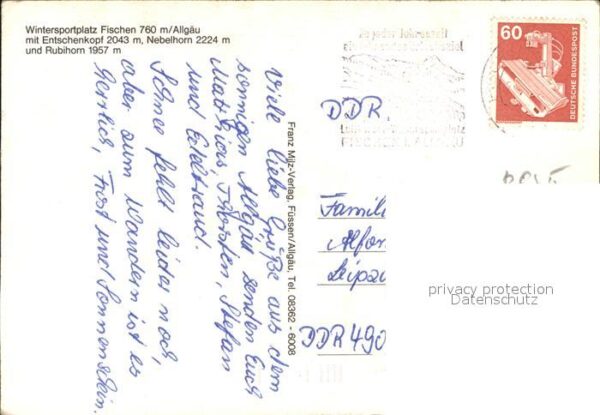 Wintersportplatz Fischen 760 m/Allgäu
mit Entschenkopf 2043 m, Nebelhorn 2224 m
und Rubihorn 1957 m
Viele liebe Grüße aus dem
sonnigen Allgäu senden Euch
Matthias, Thorsten, Stefan
und Edeltraud.
Schnee fehlt leider noch,
aber zum Wandern ist es
herrlich, Frost und Sonnenschein.
Franz Milz-Verlag, Füssen/Allgäu, Tel. 08362 - 6008
60
DEUTSCHE BUNDESPOST
DDR.
Famili
Alfon
Leipzi
DDR 490
privacy protection
Datenschutz